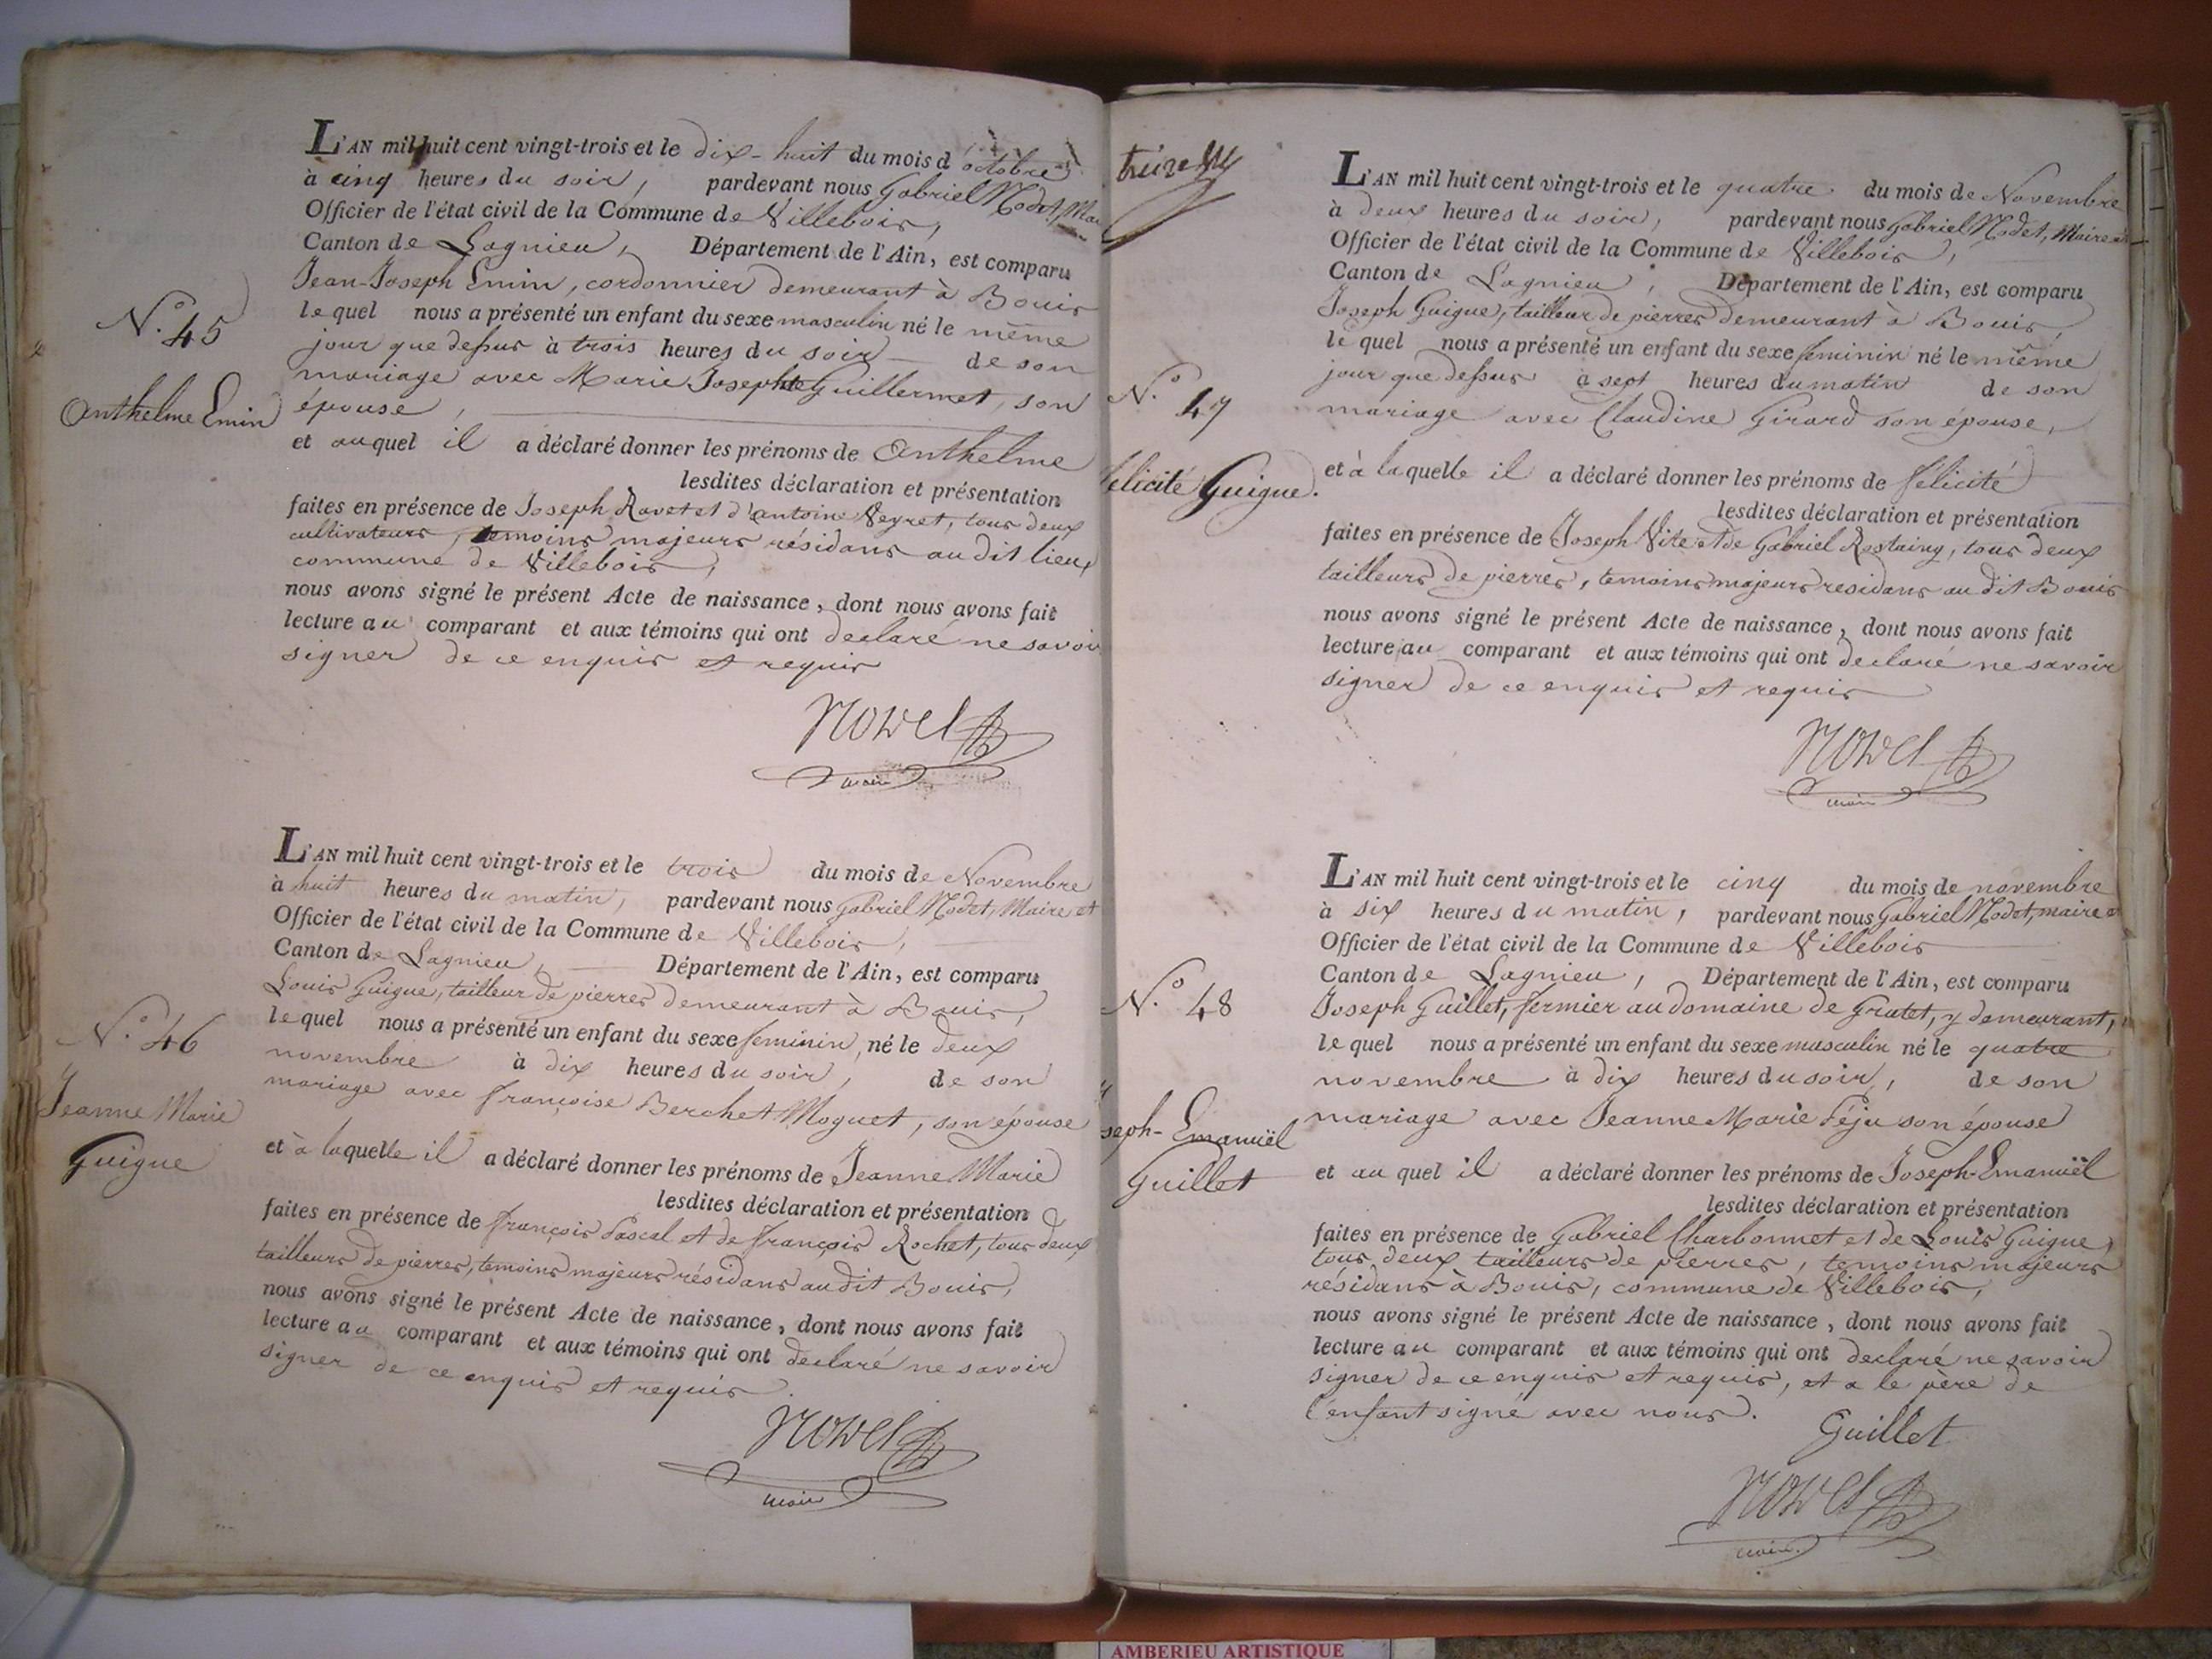 L'AN mil huit cent vingt-trois et le dix-huit du mois d'octobre
à cinq heures du soir, pardevant nous Gabriel Nodet, Mai
Officier de l'état civil de la Commune de Villebois,
Canton de Lagnieu, Département de l'Ain, est comparu
Jean-Joseph Emin, cordonnier demeurant à Bouis
lequel nous a présenté un enfant du sexe masculin né le même
jour que dessus à trois heures du soir de son
mariage avec Marie Josephte Guillermet, son
épouse,
et auquel il a déclaré donner les prénoms de Anthelme
lesdites déclaration et présentation
faites en présence de Joseph Ravet et d'antoine Veyret, tous deux
cultivateurs, temoins majeurs résidans au dit lieux
commune de Villebois,
nous avons signé le présent Acte de naissance, dont nous avons fait
lecture au comparant et aux témoins qui ont declaré ne savoir
signer de ce enquis et requis
N.° 45
Anthelme Emin
maire
L'AN mil huit cent vingt-trois et le trois du mois de Novembre
à huit heures du matin, pardevant nous Gabriel Nodet, Maire et
Officier de l'état civil de la Commune de Villebois,
Canton de Lagnieu, Département de l'Ain, est comparu
Louis Guigue, tailleur de pierres demeurant à Bouis,
lequel nous a présenté un enfant du sexe feminin, né le deux
novembre à dix heures du soir, de son
mariage avec françoise Berchet Moguet, son épouse
et à laquelle il a déclaré donner les prénoms de Jeanne Marie
lesdites déclaration et présentation
faites en présence de françois Pascal et de françois Rochet, tous deux
tailleurs de pierres, temoins majeurs résidans audit Bouis,
nous avons signé le présent Acte de naissance, dont nous avons fait
lecture au comparant et aux témoins qui ont declaré ne savoir
signer de ce enquis et requis.
N.° 46
Jeanne Marie
Guigue
maire
treize
L'AN mil huit cent vingt-trois et le quatre du mois de Novembre
à deux heures du soir, pardevant nous Gabriel Nodet, Maire et
Officier de l'état civil de la Commune de Villebois,
Canton de Lagnieu, Département de l'Ain, est comparu
Joseph Guigue, tailleur de pierres demeurant à Bouis,
lequel nous a présenté un enfant du sexe feminin né le même
jour que dessus à sept heures du matin de son
mariage avec Claudine Girard son épouse,
et à laquelle il a déclaré donner les prénoms de félicité
lesdites déclaration et présentation
faites en présence de Joseph Vite et de Gabriel Rostaing, tous deux
tailleurs de pierres, temoins majeurs residans au dit Bouis
nous avons signé le présent Acte de naissance, dont nous avons fait
lecture au comparant et aux témoins qui ont declaré ne savoir
signer de ce enquis et requis
N.° 47
félicité Guigue.
maire
L'AN mil huit cent vingt-trois et le cinq du mois de novembre
à six heures du matin, pardevant nous Gabriel Nodet, maire et
Officier de l'état civil de la Commune de Villebois
Canton de Lagnieu, Département de l'Ain, est comparu
Joseph Guillet, fermier au domaine de Grutet, y demeurant,
lequel nous a présenté un enfant du sexe masculin né le quatre
novembre à dix heures du soir, de son
mariage avec Jeanne Marie Féju son épouse
et au quel il a déclaré donner les prénoms de Joseph-Emanuël
lesdites déclaration et présentation
faites en présence de Gabriel Charbonnet et de Louis Guigue,
tous deux tailleurs de pierres, temoins majeurs
résidans à Bouis, commune de Villebois,
nous avons signé le présent Acte de naissance, dont nous avons fait
lecture au comparant et aux témoins qui ont declaré ne savoir
signer de ce enquis et requis, et a le père de
l'enfant signé avec nous.
Guillet
N.° 48
seph-Emanuël
Guillet
maire.
AMBERIEU ARTISTIQUE